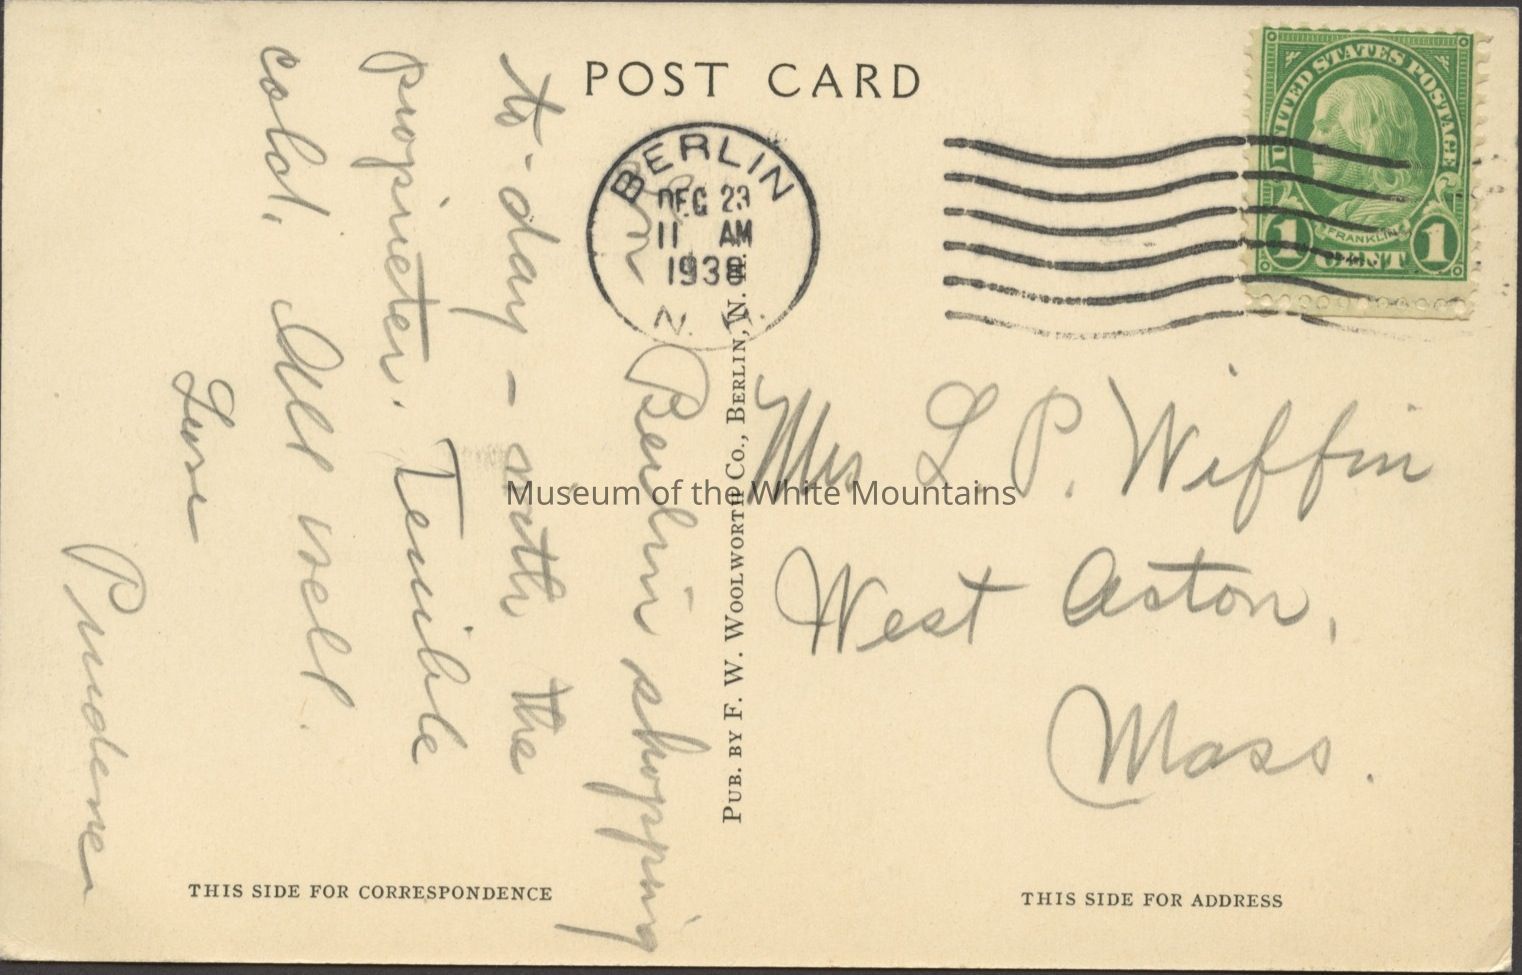 POST CARD
BERLIN
DEC 23
11 AM
1938
N.H.
UNITED STATES POSTAGE
FRANKLIN
1 CENT 1
Am in Berlin shopping
to-day - with the
proprieter. Terrible
cold. All well.
Love
Prudence
PUB. BY F. W. WOOLWORTH CO., BERLIN, N. H.
Mrs L. P. Wiffin
West Acton,
Mass.
Museum of the White Mountains
THIS SIDE FOR CORRESPONDENCE
THIS SIDE FOR ADDRESS